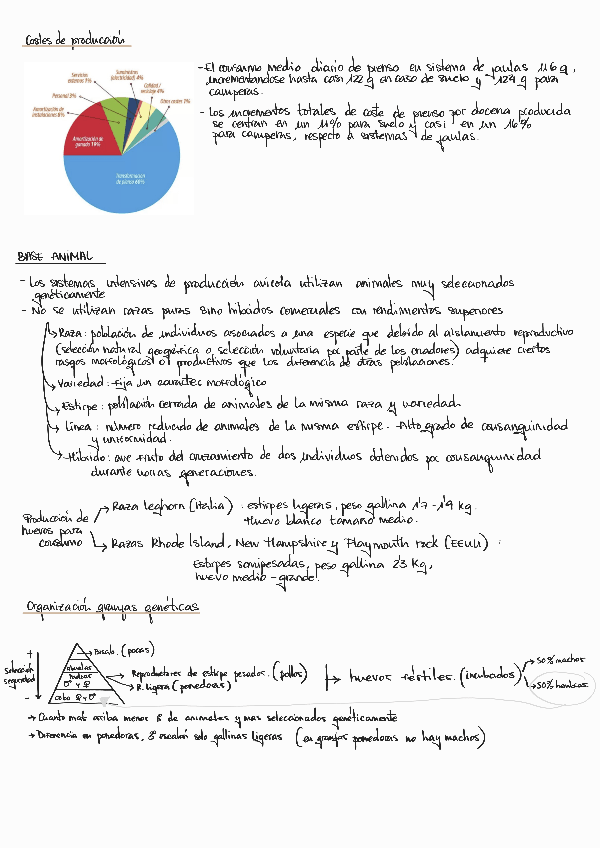 Costes de producción
Servicios externos 3%
Suministros (electricidad) 4%
Calidad / reciclaje 4%
Otros costes 3%
Personal 9%
Amortización de instalaciones 8%
Amortización de gallina 18%
de pienso 60%
-El consumo medio diario de pienso en sistema de jaulas 116 g,
incrementandose hasta casi 122 g en caso de suelo y 124 g para
camperas.
- Los incrementos totales de coste de pienso por docena producida
se centran en un 11% para suelo y casi en un 16%
para camperas, respecto a sistemas de jaulas.
BASE ANIMAL
- Los sistemas intensivos de producción avícola utilizan animales muy seleccionados
genéticamente
- No se utilizan razas puras sino híbridos comerciales con rendimientos superiores
Raza: población de individuos asociados a una especie que debido al aislamiento reproductivo
(selección natural geográfica o selección voluntaria por parte de los criadores) adquiere ciertos
rasgos morfológicos o productivos que los diferencia de otras poblaciones.
Variedad: fija un caracter morfológico
Estirpe: población cerrada de animales de la misma raza y variedad.
Línea: número reducido de animales de la misma estirpe. Alto grado de consanguinidad
y uniformidad.
Híbrido: ave fruto del cruzamiento de dos individuos obtenidos por consanguinidad
durante varias generaciones.
Producción de
huevos para
consumo
Raza leghorn (Italia). estirpes ligeras, peso gallina 1'7 - 1'9 kg.
Huevo blanco tamaño medio.
Razas Rhode Island, New Hampshire y Playmouth rock (EEUU):
Estirpes semipesadas, peso gallina 2'3 Kg,
huevo medio - grande.
Organización granjas genéticas
+
Selección
seguridad
-
Bisab. (pocas)
abuelas
♂ y ♀
♀ y ♂
Reproductores de estirpe pesados. (pollos)
R. ligera (ponedoras)
huevos fértiles. (incubados)
50% machos
50% hembras
→ Cuanto mas arriba menor nº de animales y mas seleccionados genéticamente
→ Diferencia en ponedoras, 3º escalón solo gallinas ligeras (en granjas ponedoras no hay machos)